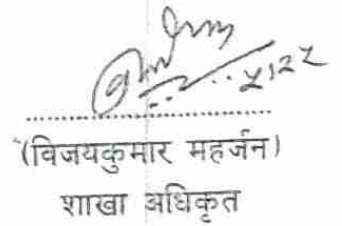 ५।२२
(विजयकुमार महर्जन)
शाखा अधिकृत